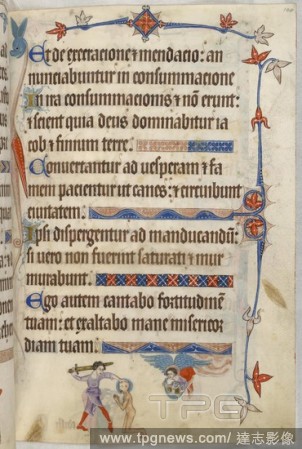 Et de execracione & mendacio: an
nunciabuntur in consummacione
In ira consummacionis & nō erunt:
& scient quia deus dominabitur ia
cob & finium terre.
Convertantur ad vesperam & fa
mem pacientur ut canes: & circuibunt
civitatem.
Ipsi dispergentur ad manducandū:
si vero non fuerint saturati & mur
murabunt.
Ego autem cantabo fortitudinē
tuam: et exaltabo mane misericor
diam tuam.
TPG
www.tpgnews.com/ 達志影像